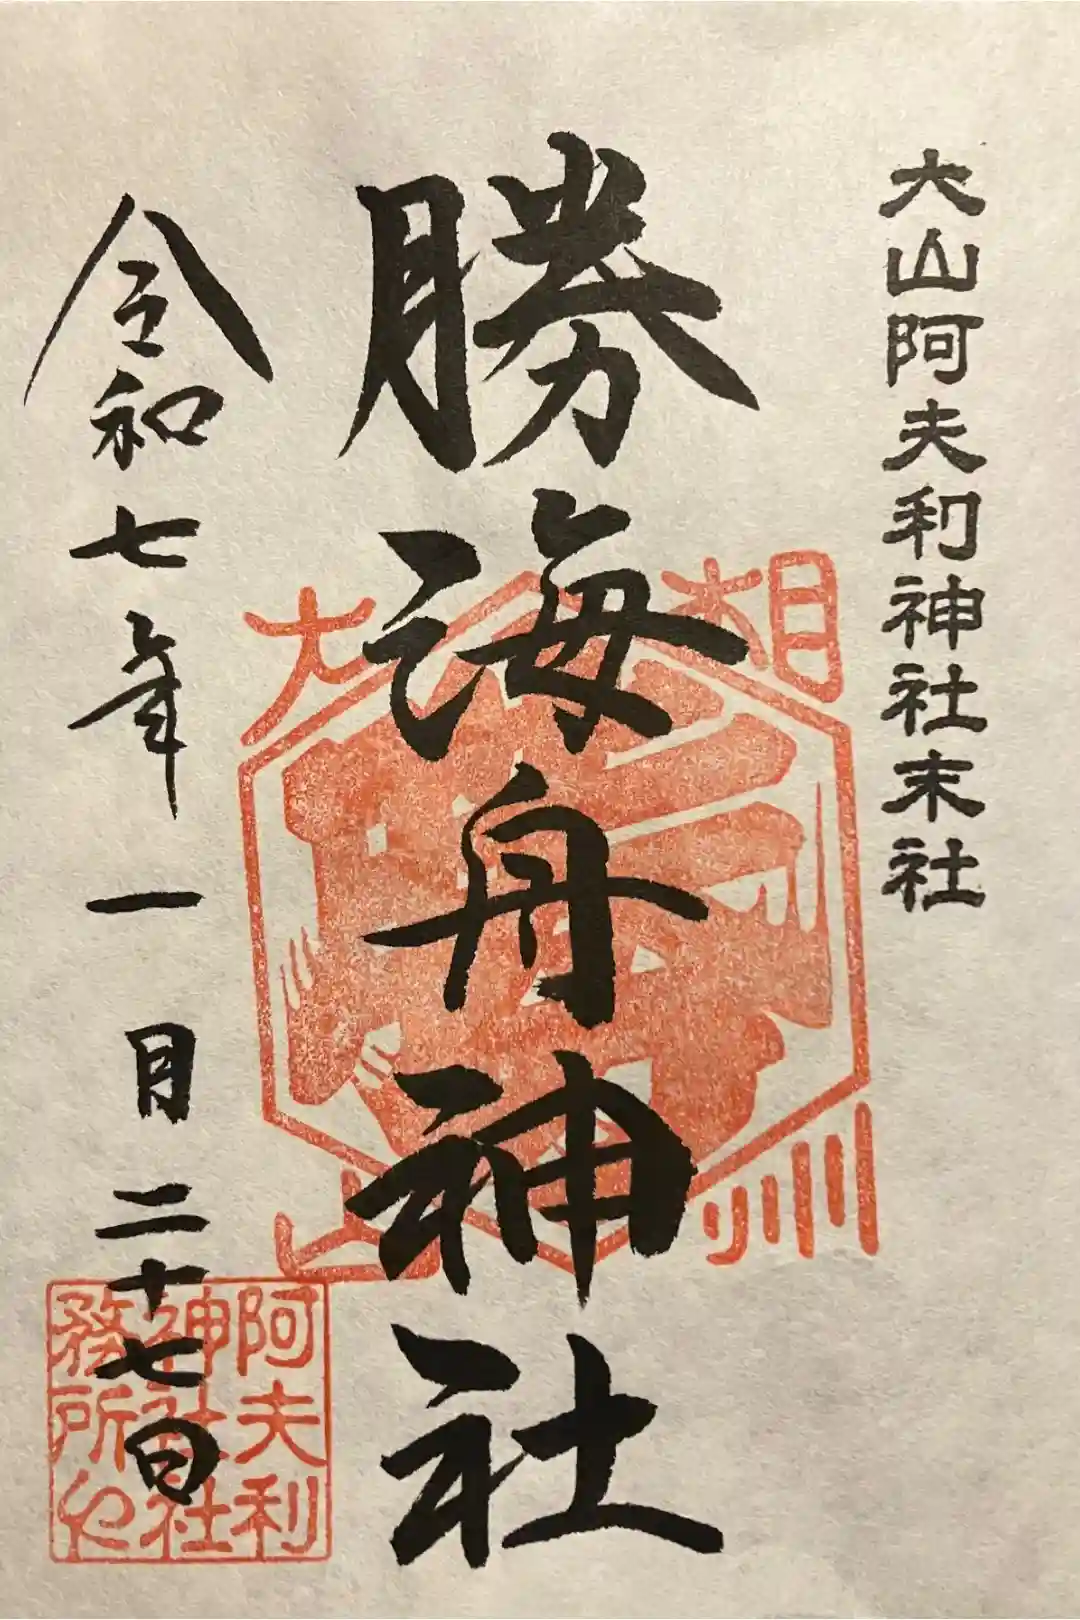 大山阿夫利神社末社
勝海舟神社
令和七年一月二十七日
相州
大山
阿夫利
神社社
務所也